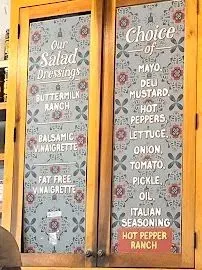 Our
Salad
Dressings
BUTTERMILK
RANCH
BALSAMIC
VINAIGRETTE
FAT FREE
VINAIGRETTE
Choice
of
MAYO,
DELI
MUSTARD
HOT
PEPPERS,
LETTUCE,
ONION,
TOMATO,
PICKLE,
OIL,
ITALIAN
SEASONING
HOT PEPPER
RANCH